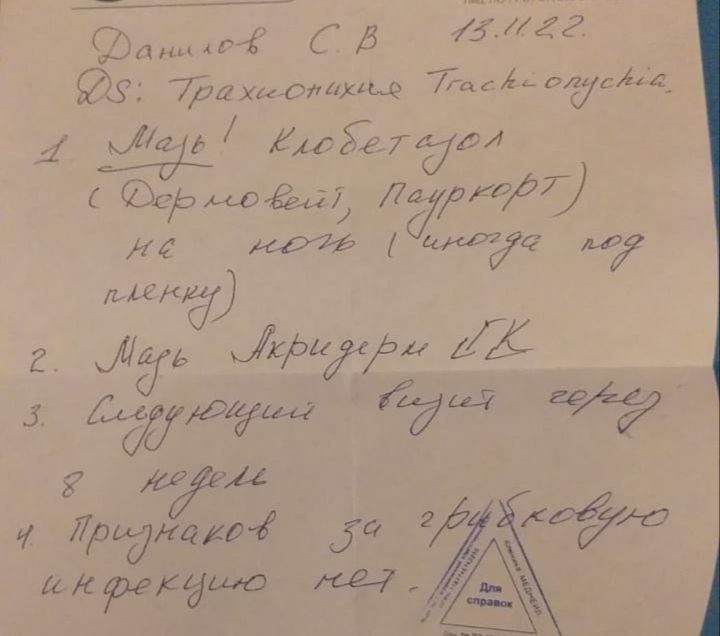 Данилов С.В 13.11.22.
DS: Трахионихия Trachionychia.
1 Мазь! Клобетазол
(Дермовейт, Пауркорт)
на ночь (иногда под
пленку)
2. Мазь Акридерм ГК
3. Следующий визит через
8 недель
4. Признаков за грибковую
инфекцию нет.
Клиника МЕДНЕЙЛ
Для
справок